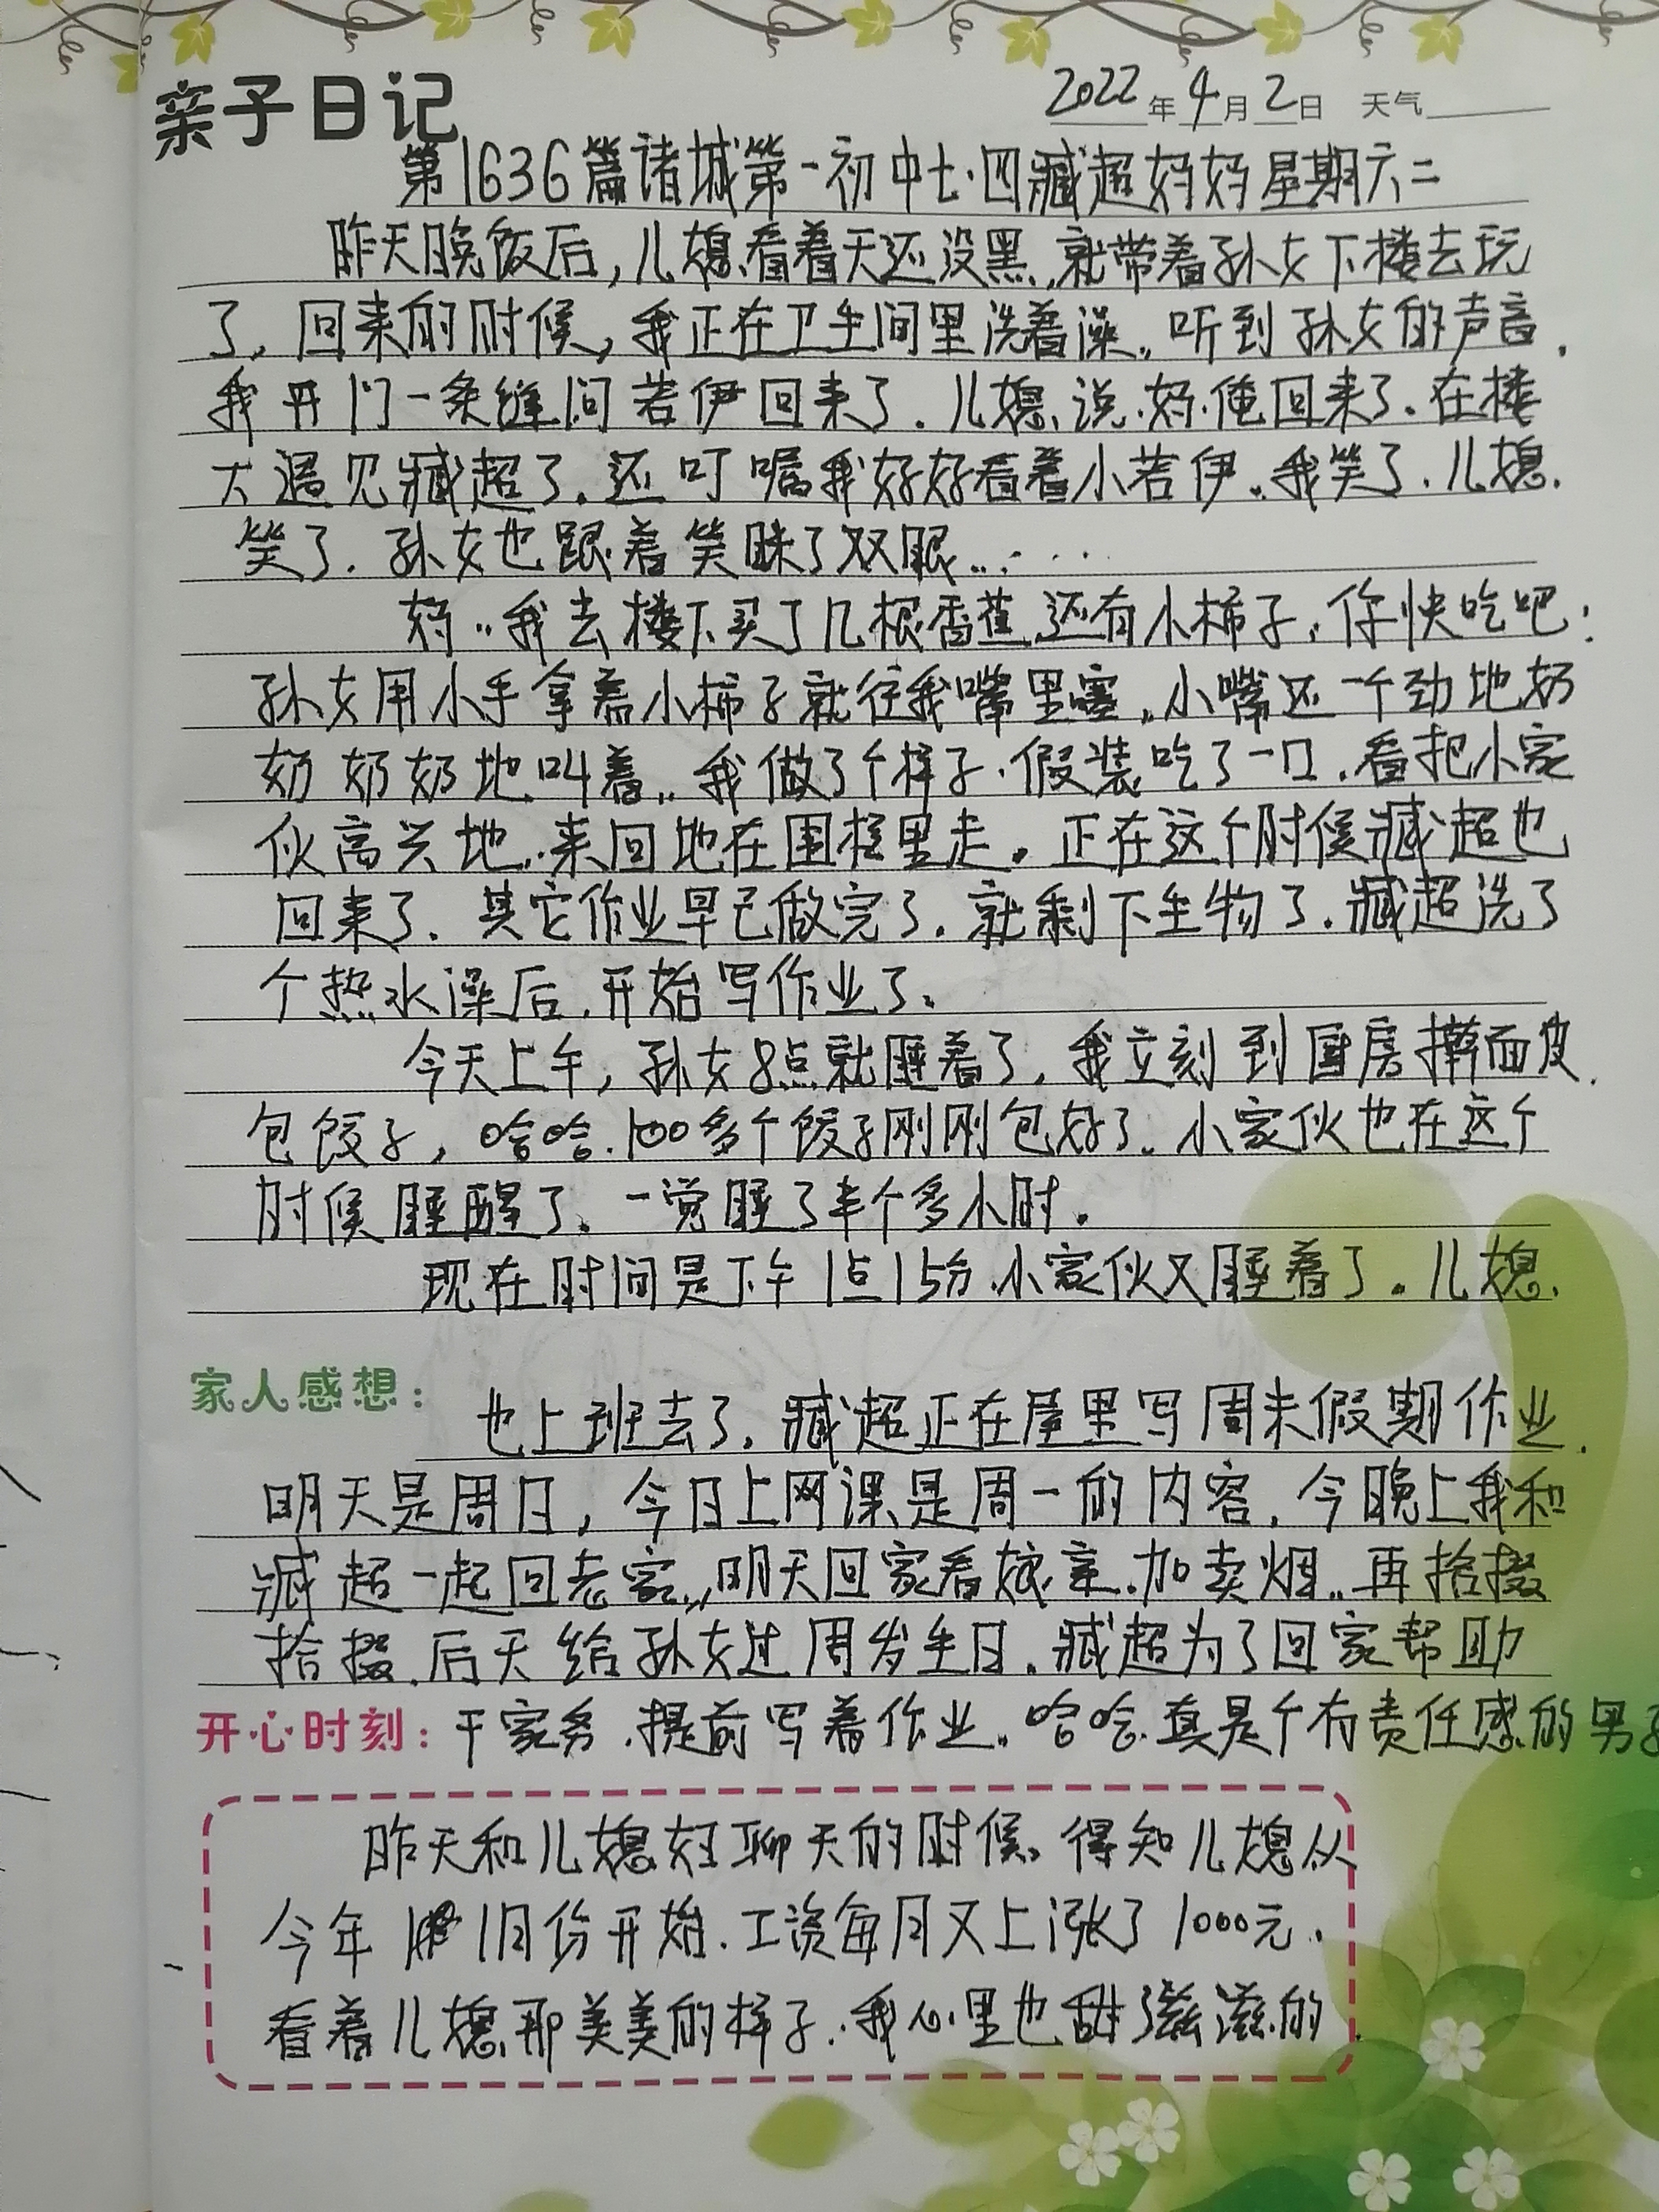 亲子日记
2022年4月2日 天气
第1636篇诸城第一初中七.四臧超妈妈星期六二
昨天晚饭后,儿媳看着天还没黑,就带着孙女下楼去玩
了,回来的时候,我正在卫生间里洗着澡,听到孙女的声音,
我开门一条缝问若伊回来了.儿媳说.妈.俺回来了.在楼
下遇见臧超了.还叮嘱我好好看着小若伊.我笑了.儿媳
笑了.孙女也跟着笑眯了双眼......
妈,我去楼下买了几根香蕉,还有小柿子,你快吃吧!
孙女用小手拿着小柿子就往我嘴里塞,小嘴还一个劲地奶
奶奶奶地叫着,我做了个样子.假装吃了一口,看把小家
伙高兴地.来回地在围栏里走。正在这个时候臧超也
回来了.其它作业早已做完了.就剩下生物了.臧超洗了
个热水澡后.开始写作业了。
今天上午,孙女8点就睡着了,我立刻到厨房擀面皮.
包饺子,哈哈.100多个饺子刚刚包好了.小家伙也在这个
时候睡醒了.一觉睡了半个多小时.
现在时间是下午1点15分.小家伙又睡着了.儿媳
家人感想: 也上班去了,臧超正在屋里写周末假期作业.
明天是周日,今日上网课是周一的内容,今晚上我和
臧超一起回老家,明天回家看娘亲.加卖烟.再拾掇
拾掇.后天给孙女过周岁生日.臧超为了回家帮助
开心时刻: 干家务.提前写着作业.哈哈.真是个有责任感的男子
昨天和儿媳妇聊天的时候.得知儿媳从
今年1月份开始.工资每月又上涨了1000元.
看着儿媳那美美的样子.我心里也甜了滋滋的